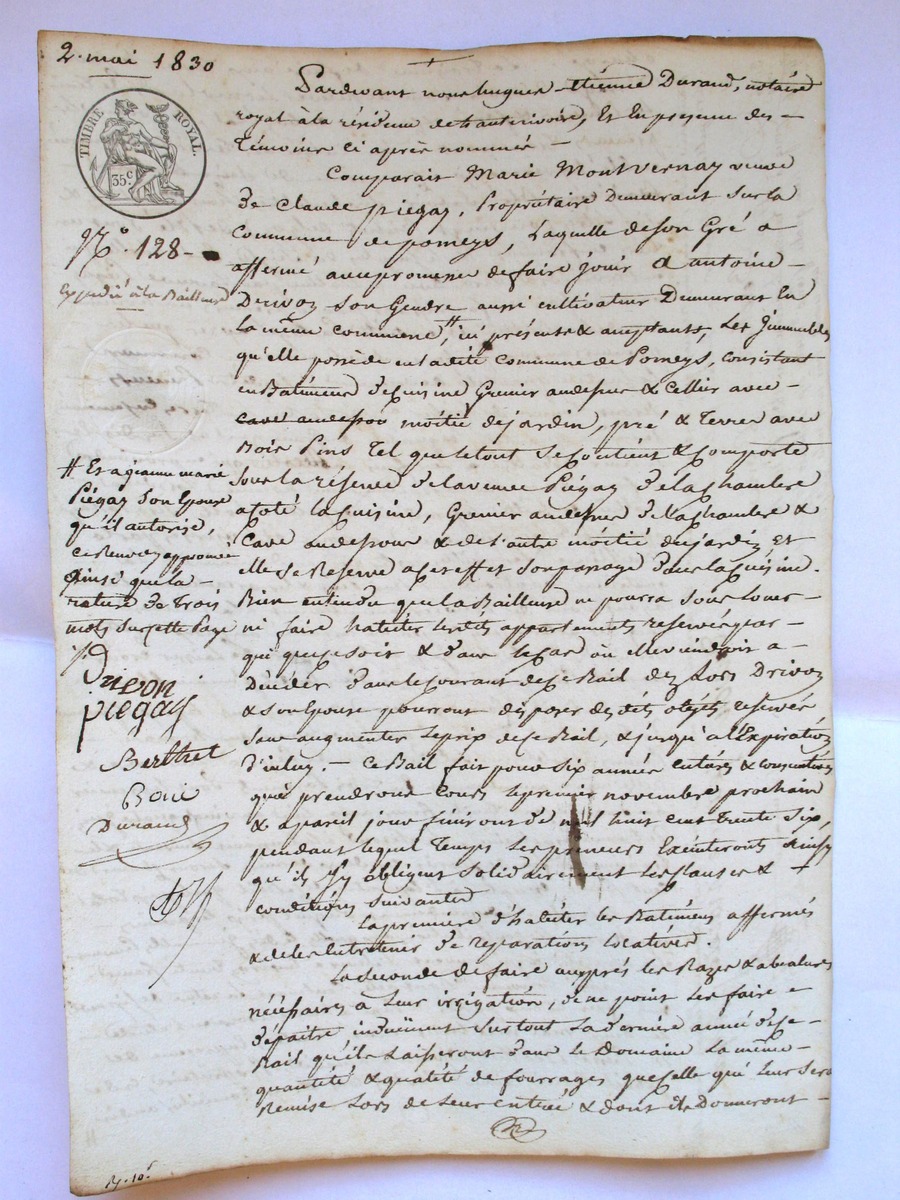 2. mai 1830
TIMBRE ROYAL.
35.c
N.o 128
Expédié à la Bailleuse
Pardevant nous hugues étienne Durand, notaire
royal à la résidence de, Et En présence des
Témoins ci après nommés
Comparait Marie Montvernay veuve
De Claude piégay, Propriétaire Demeurant sur la
Commune de pomeys, Laquelle de son Gré a
affermé avec promesse de faire jouir à antoine
Drivoz son Gendre aussi cultivateur Demeurant En
la même commune #, ici présents & acceptants, Les Immeubles
qu'elle possède en ladite Commune de Pomeys, consistant
en Batimens De Cuisine Grenier audessus & Cellier avec
cave audessou moitié de jardin, pré & Terres avec
Bois Pins Tel que le tout se Contient & Comporte
sous la réserve de la veuve Piégay De la Chambre
a coté la Cuisine, Grenier audessus de la Chambre &
Cave audessous & de l'autre moitié du jardin Et
elle se Réserve à cet effet son passage Dans la Cuisine.
Bien entendu que la Bailleuse ne pourra sous Louer
ni faire habiter lesdits appartements réservés par
qui que ce soit & Dans le cas où elle viendroit a
Décider Dans le Courant de ce Bail dez Lors Drivoz
& son Epouse pourront disposer desdits objets réservés
sans augmenter le prix de ce Bail, & jusqu'a l'Expiration
D'icelui. — Ce Bail fait pour six années entières & consécutives
que prendront cours le premier novembre prochain
& a pareil jour finiront de mil huit cent trente six,
pendant lequel Temps les preneurs Exécuteront Ainsy
qu'ils s'y obligent solidairement les clauses &
conditions suivantes
La première d'habiter les Batimens affermés
& de les Entretenir de réparations locatives.
La seconde de faire aux prés les Razes &
nécéssaires à Leur irrigation, de ne point les faire
dépaitre induëment surtout La dernière année de ce
Bail qu'ils Laisseront Dans le Domaine La même
quantité & qualité de fourrages que Celle qui Leur sera
Remise Lors de Leur entrée & dont ils Donneront
# Et a jeanne marie
Piégay son Epouse
qu'il autorise,
ce Renvoy approuvé
Ainsi que la
rature De Trois
mots sur cette Page
piegay
Berthet
Durand